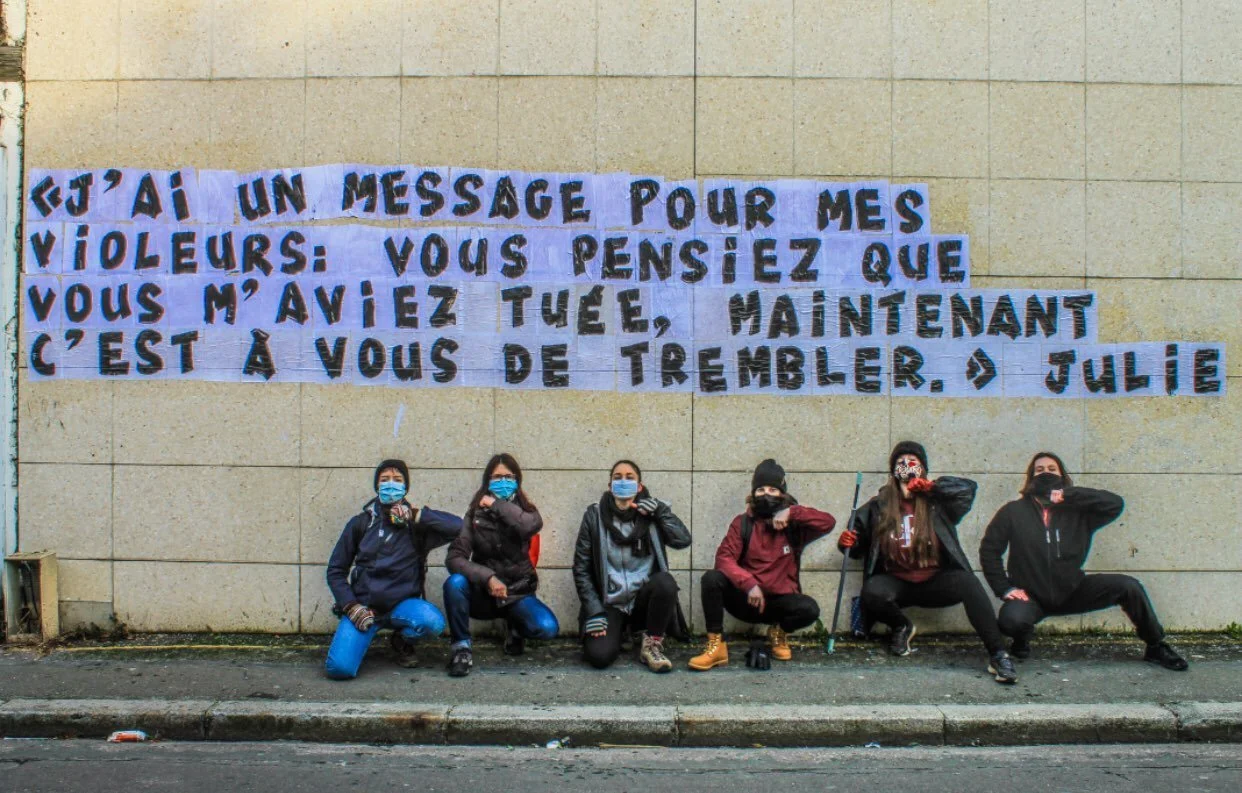 «J'Ai UN MESSAGE POUR MES
ViOLEURS: VOUS PENSiEZ QUE
VOUS M'AViEZ TUÉE, MAiNTENANT
C'EST À VOUS DE TREMBLER.» JULiE